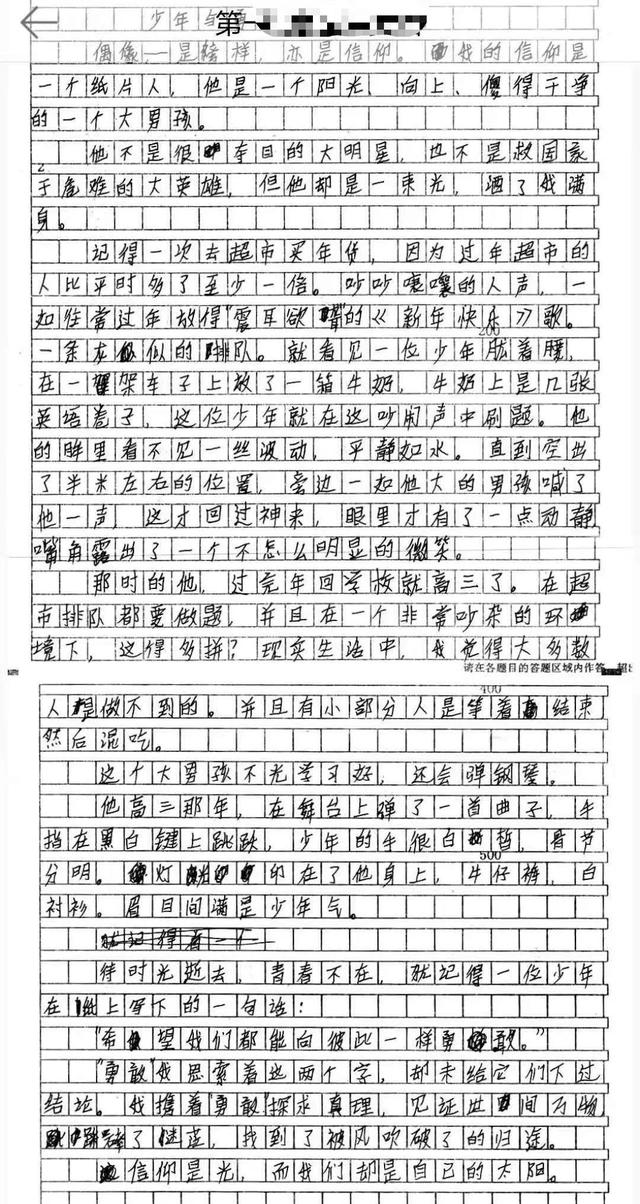 少年与
第一
偶像,一是榜样,亦是信仰。我的信仰是
一个纸片人,他是一个阳光、向上、傻得干净
的一个大男孩。
他不是很夺目的大明星,也不是救国家
于危难的大英雄,但他却是一束光,洒了我满
身。
记得一次去超市买年货,因为过年超市的
人比平时多了至少一倍。吵吵嚷嚷的人声,一
如往常过年放得"震耳欲聋"的《新年快乐》歌。
200
一条龙似的排队。就看见一位少年肱着腰,
在一架车子上放了一箱牛奶,牛奶上是几张
英语卷子,这位少年就在这吵闹声中刷题。他
的眸里看不见一丝波动,平静如水。直到空出
了半米左右的位置,旁边一如他大的男孩喊了
他一声,这才回过神来,眼里才有了一点动静,
嘴角露出了一个不怎么明显的微笑。
那时的他,过完年回学校就高三了。在超
市排队都要做题,并且在一个非常吵杂的环
境下,这得多拼?现实生活中,我觉得大多数
请在各题目的答题区域内作答,超出
400
人是做不到的。并且有小部分人是等着结束
然后混吃。
这个大男孩不光学习好,还会弹钢琴。
他高三那年,在舞台上弹了一首曲子,手
挡在黑白键上跳跃,少年的手很白皙,骨节
500
分明。灯印在了他身上,牛仔裤,白
衬衫。眉目间满是少年气。
待时光逝去,青春不在,就记得一位少年
在纸上写下的一句话:
"希望我们都能向彼此一样勇敢。"
"勇敢"我思索着这两个字,却未给它们下过
结论。我携着"勇敢"探求真理,见证世间万物,
了迷茫,找到了被风吹破了的归途。
信仰是光,而我们却是自己的太阳。